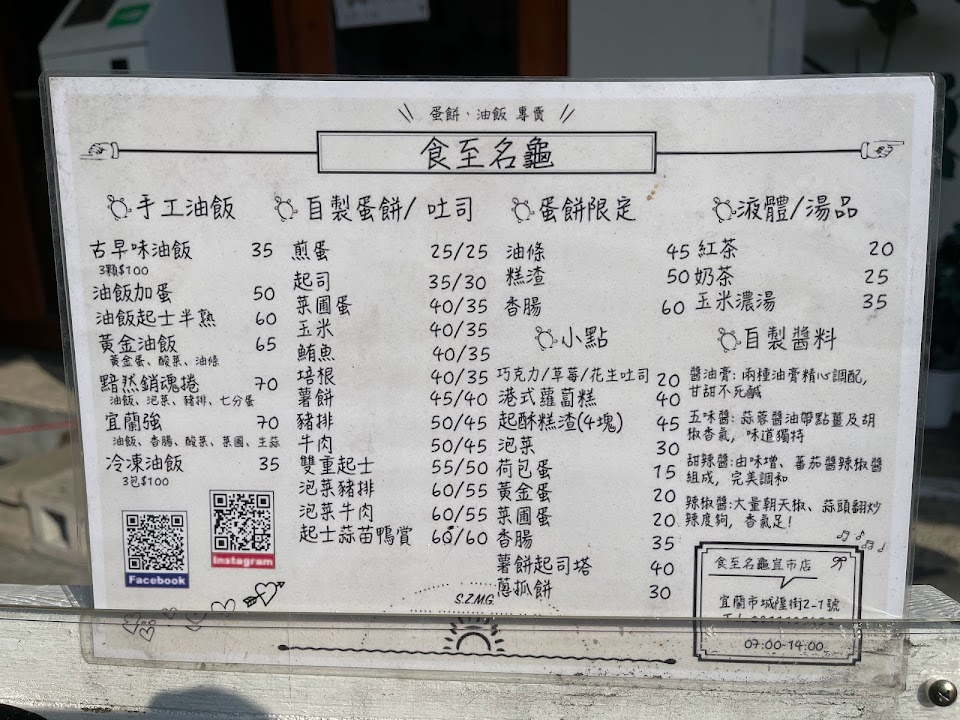 蛋餅、油飯 專賣
食至名龜
手工油飯
古早味油飯 35
3顆$100
油飯加蛋 50
油飯起士半熟 60
黃金油飯 65
黃金蛋、酸菜、油條
黯然銷魂捲 70
油飯、泡菜、豬排、七分蛋
宜蘭強 70
油飯、香腸、酸菜、菜圃、生蒜
冷凍油飯 35
3包$100
Facebook
Instagram
自製蛋餅/吐司
煎蛋 25/25
起司 35/30
菜圃蛋 40/35
玉米 40/35
鮪魚 40/35
培根 40/35
薯餅 45/40
豬排 50/45
牛肉 50/45
雙重起士 55/50
泡菜豬排 60/55
泡菜牛肉 60/55
起士蒜苗鴨賞 60/60
蛋餅限定
油條 45
糕渣 50
香腸 60
小點
巧克力/草莓/花生吐司 20
港式蘿蔔糕 40
起酥糕渣(4塊) 45
泡菜 30
荷包蛋 15
黃金蛋 20
菜圃蛋 20
香腸 35
薯餅起司塔 40
蔥抓餅 30
S.Z.M.G.
液體/湯品
紅茶 20
奶茶 25
玉米濃湯 35
自製醬料
醬油膏: 兩種油膏精心調配,
甘甜不死鹹
五味醬: 蒜蓉醬油帶點薑及胡
椒香氣, 味道獨特
甜辣醬:由味增、蕃茄醬辣椒醬
組成, 完美調和
辣椒醬:大量朝天椒、蒜頭翻炒
辣度夠, 香氣足!
食至名龜宜市店
宜蘭市城隍街2-1號
07:00-14:00